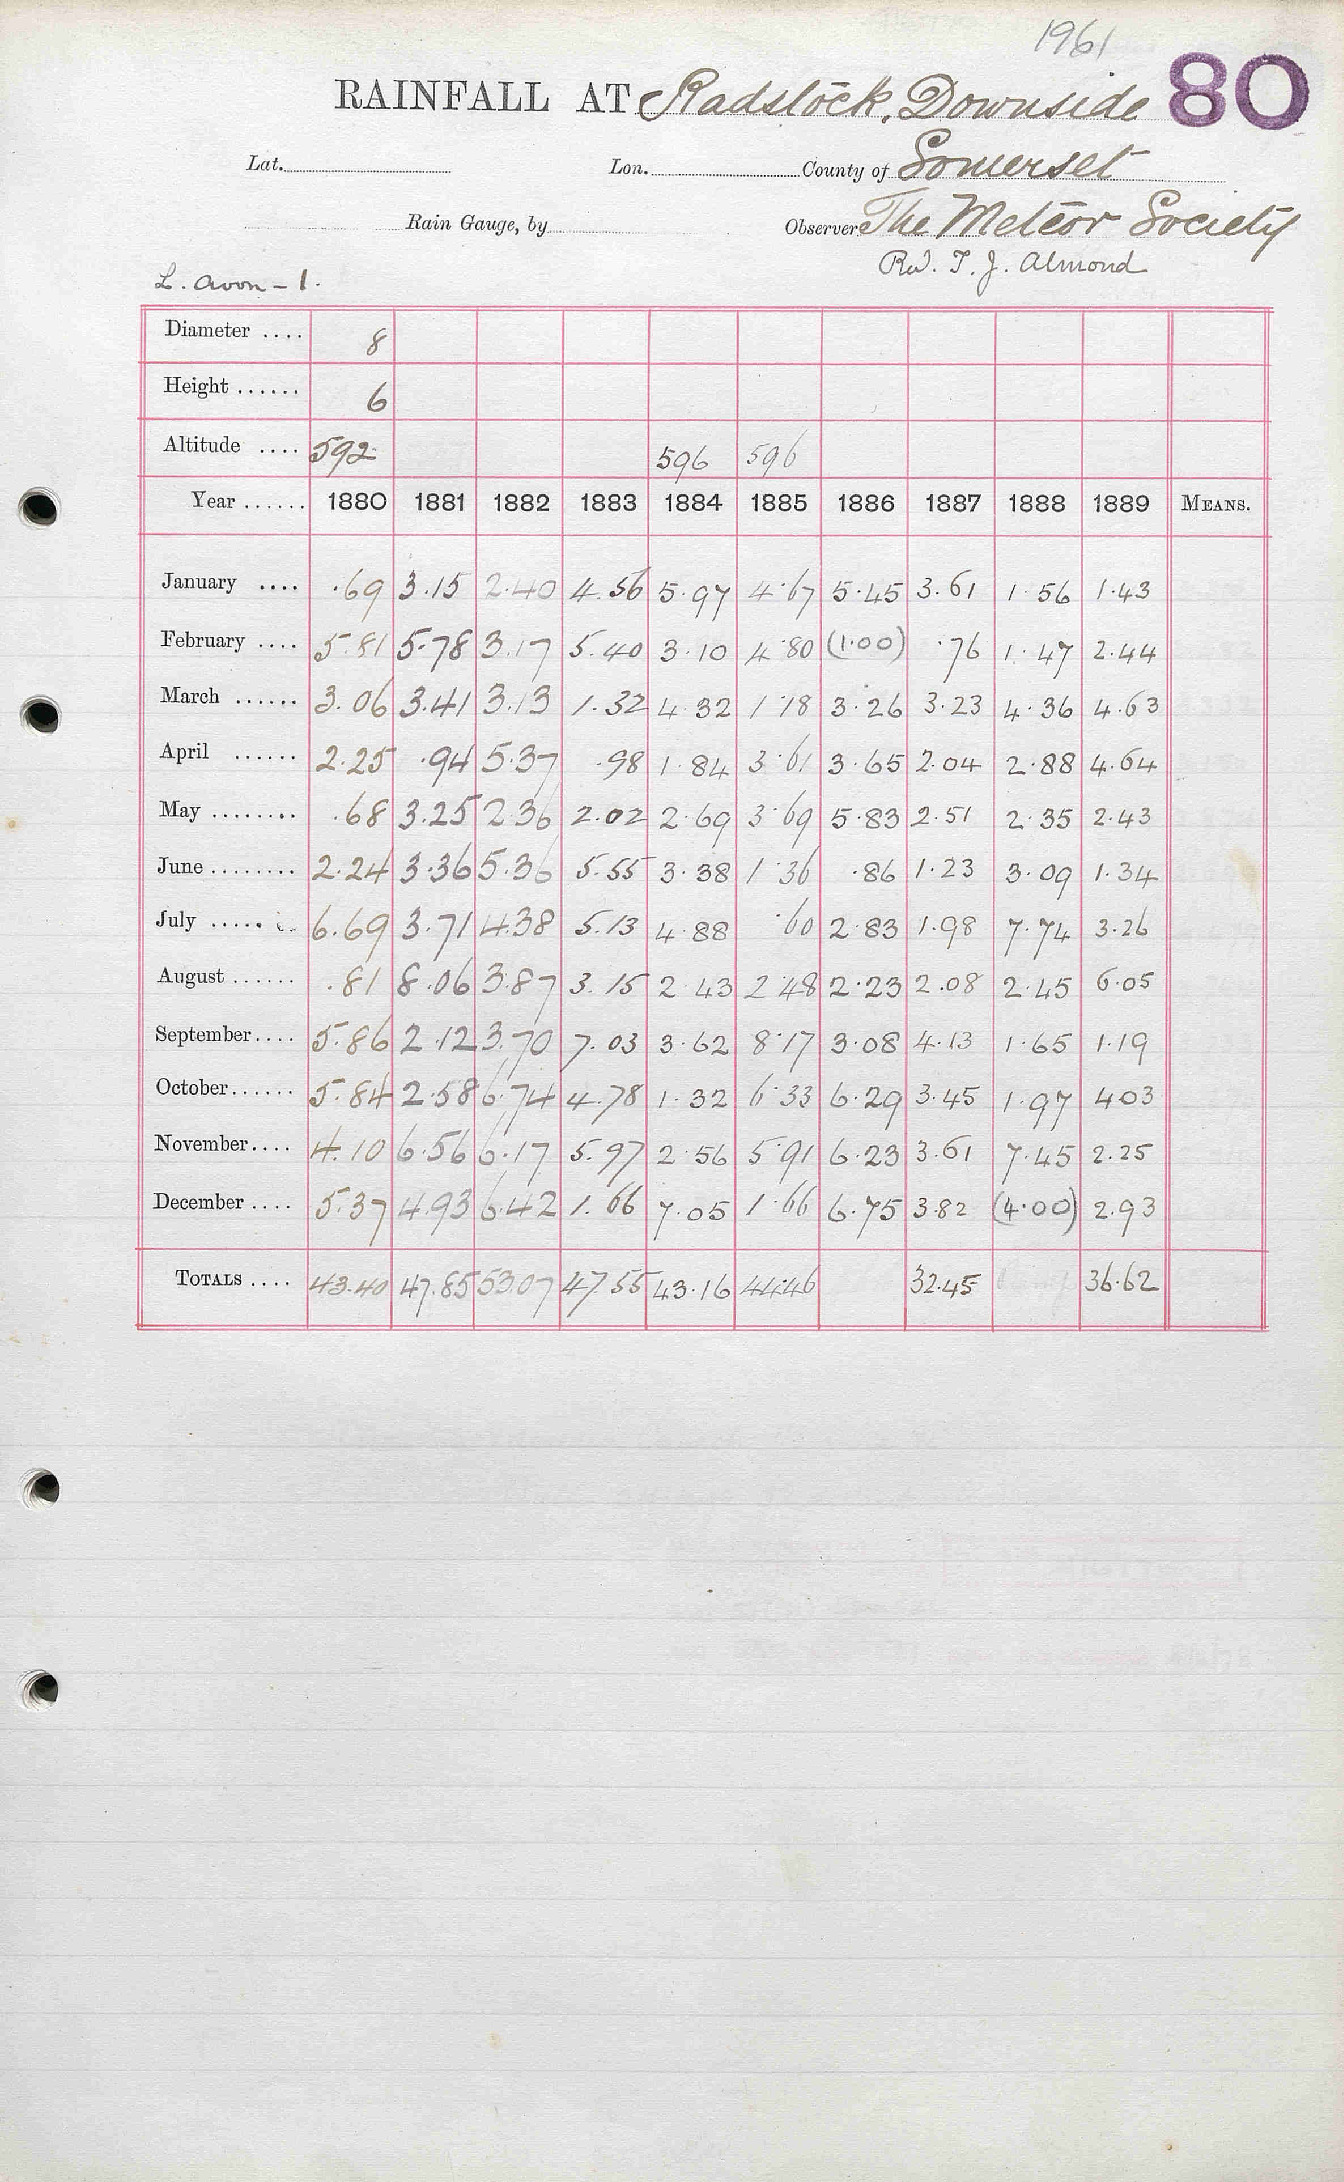 1961
RAINFALL AT Radstock, Downside 80
Lat. Lon. County of Somerset
Rain Gauge, by Observer The Meteor Society
Rev. T. J. Almond
L. Avon - 1.
Diameter .... 8
Height ...... 6
Altitude .... 592 596 596
Year ...... 1880 1881 1882 1883 1884 1885 1886 1887 1888 1889 MEANS.
January .... .69 3.15 2.40 4.56 5.97 4.67 5.45 3.61 1.56 1.43
February .... 5.81 5.78 3.17 5.40 3.10 4.80 (1.00) .76 1.47 2.44
March ...... 3.06 3.41 3.13 1.32 4.32 1.18 3.26 3.23 4.36 4.63
April ...... 2.25 .94 5.37 .98 1.84 3.61 3.65 2.04 2.88 4.64
May ........ .68 3.25 2.36 2.02 2.69 3.69 5.83 2.51 2.35 2.43
June ........ 2.24 3.36 5.36 5.55 3.38 1.36 .86 1.23 3.09 1.34
July ...... 6.69 3.71 4.38 5.13 4.88 .60 2.83 1.98 7.74 3.26
August ...... .81 8.06 3.87 3.15 2.43 2.48 2.23 2.08 2.45 6.05
September .... 5.86 2.12 3.70 7.03 3.62 8.17 3.08 4.13 1.65 1.19
October ...... 5.84 2.58 6.74 4.78 1.32 6.33 6.29 3.45 1.97 4.03
November .... 4.10 6.56 6.17 5.97 2.56 5.91 6.23 3.61 7.45 2.25
December .... 5.37 4.93 6.42 1.66 7.05 1.66 6.75 3.82 (4.00) 2.93
TOTALS .... 43.40 47.85 53.07 47.55 43.16 44.46 32.45 36.62